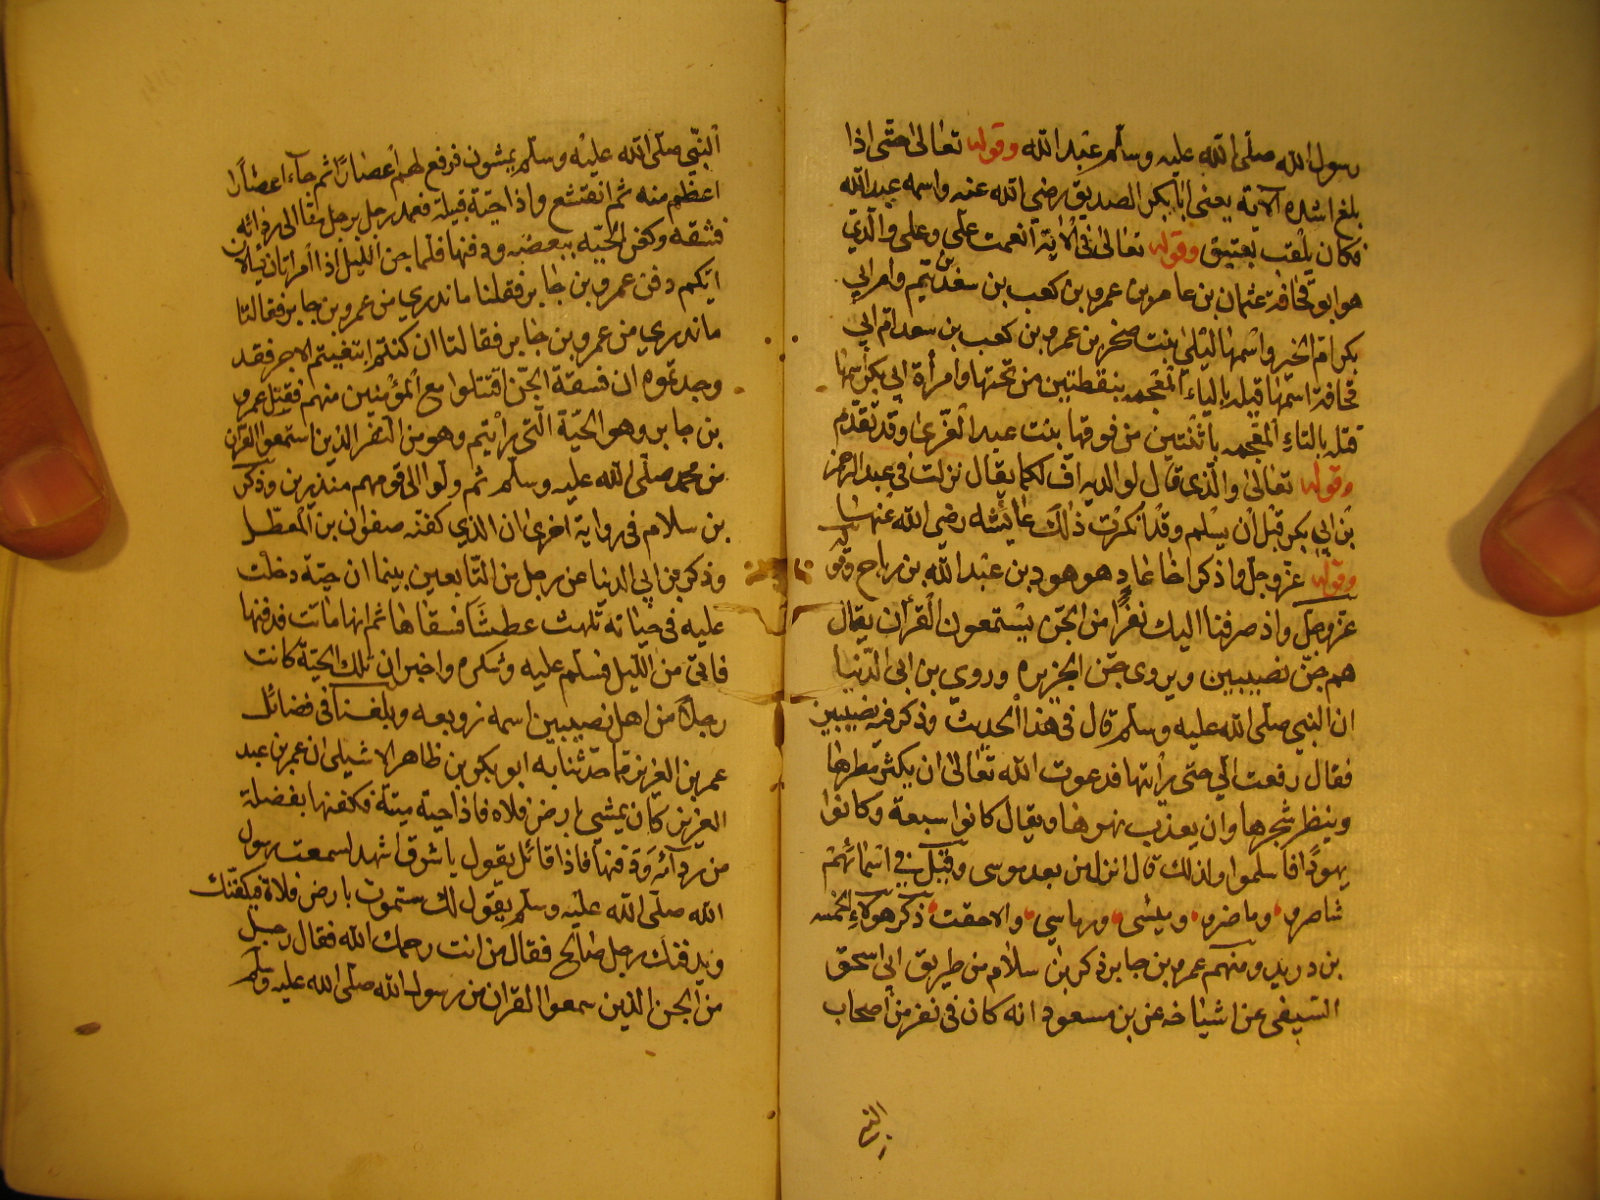 رسول الله صلى الله عليه وسلم عبد الله وقوله تعالى حتى اذا
بلغ اشده الآية يعنى ابا بكر الصديق رضي الله عنه واسمه عبد الله
فكان يلقب بعتيق وقوله تعالى في الاية انعمت على وعلى والدي
هو ابو قحافة عثمان بن عامر بن عمرو بن كعب بن سعد بن تيم وام ابي
بكر ام الخير واسمها ليلي بنت صخر بن عمرو بن كعب بن سعد ام ابي
قحافة اسمها قيله بالياء المعجمه بنقطتين من تحتها وامرأة ابي بكر اسمها
قتله بالتاء المعجمه باثنتين من فوقها بنت عبد العزى وقد تقدم
وقوله تعالى والذى قال لوالديه اف لكما يقال نزلت في عبد الرحمن
بن ابي بكر قبل ان يسلم وقد انكرت ذلك عائشه رضي الله عنها
وقوله عز وجل واذكر اخا عاد هو هود بن عبد الله بن رباح وقوله
عز وجل واذ صرفنا اليك نفرا من الجن يستمعون القرأن يقال
هم جن نصيبين ويروى جن الجزيره وروى بن ابى الدنيا
ان النبي صلى الله عليه وسلم قال في هذا الحديث وذكر فيه نصيبين
فقال رفعت الي حتى رأيتها فدعوت الله تعالى ان يكثر مطرها
وينظر شجرها وان يعذب نهرها ويقال كانوا سبعة وكانوا
يهودا فاسلموا ولذلك قال انزل من بعد موسى وقيل في اسمائهم
شاصر وماصر وميشى وماسي والاحقب ذكر هولاء الخمسه
بن دريد ومنهم عمرو بن جابر ذكر بن سلام من طريق ابي اسحق
السبيعى عن اشياخه عن بن مسعود انه كان في نفر من اصحاب
النبي
النبي صلى الله عليه وسلم يمشون فرفع لهم اعصار ثم جاء اعصار
اعظم منه ثم انقشع واذا حية قتيلة فعمد رجل منا الى ردائه
فشقه وكفن الحيه ببعضه ودفنها فلما جن الليل اذا امرأتان يسالان
ايكم دفن عمرو بن جابر فقلنا ما ندري من عمرو بن جابر فقالتا
ما ندري من عمرو بن جابر فقالتا ان كنتم ابتغيتم الاجر فقد
وجدتموه ان فسقة الجن اقتتلوا مع المؤمنين منهم فقتل عمرو
بن جابر وهو الحية التي رأيتم وهو من النفر الذين استمعوا القرآن
من محمد صلى الله عليه وسلم ثم ولوا الى قومهم منذرين وذكر
بن سلام في رواية اخرى ان الذي كفنه صفوان بن المعطل
وذكر بن ابي الدنيا عن رجل من التابعين بينما ان حية دخلت
عليه في خبائه تلهث عطشا فسقاها ثم انها ماتت فدفنها
فاتى من الليل فسلم عليه وشكره واخبر ان تلك الحية كانت
رجلا من اهل نصيبين اسمه زوبعه وبلغنا في فضائل
عمر بن العزيز مما حدثنا به ابو بكر بن طاهر الاشبيلى ان عمر بن عبد
العزيز كان يمشى بارض فلاه فاذا حية ميتة فكفنها بفضلة
من ردائه ودفنها فاذا قائل يقول يا سرق اشهد لسمعت رسول
الله صلى الله عليه وسلم يقول لك ستموت بارض فلاة فيكفنك
ويدفنك رجل صالح فقال من انت رحمك الله فقال رجل
من الجن الذين سمعوا القران من رسول الله صلى الله عليه وسلم